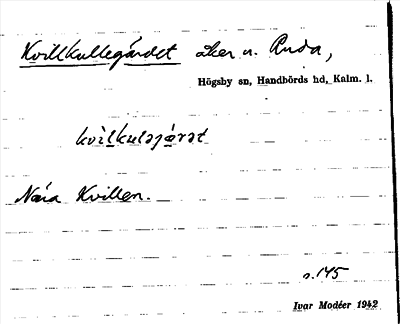 Kvillkullegärdet åker u. Ruda,
Högsby sn, Handbörds hd, Kalm. l.
kvilkuləjærət
Nära Kvillen.
s. 145
Ivar Modéer 1942